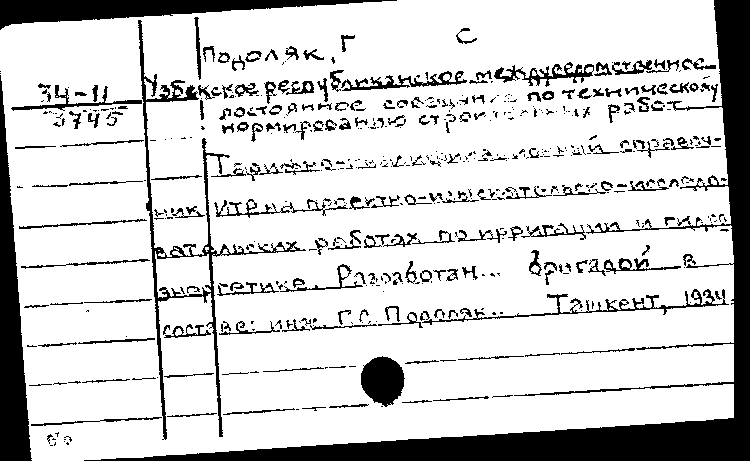 Подоляк, Г С
34-11
3745
Узбекское республиканское междуведомственное
постоянное совещание по техническому
нормированию строительных работ.
Тарифно-квалификационный справоч-
ник ИТР на проектно-изыскательско-исследо-
вательских работах по ирригации и гидро
энергетике. Разработан... бригадой в
составе: инж. Г.С. Подоляк.. Ташкент, 1934.